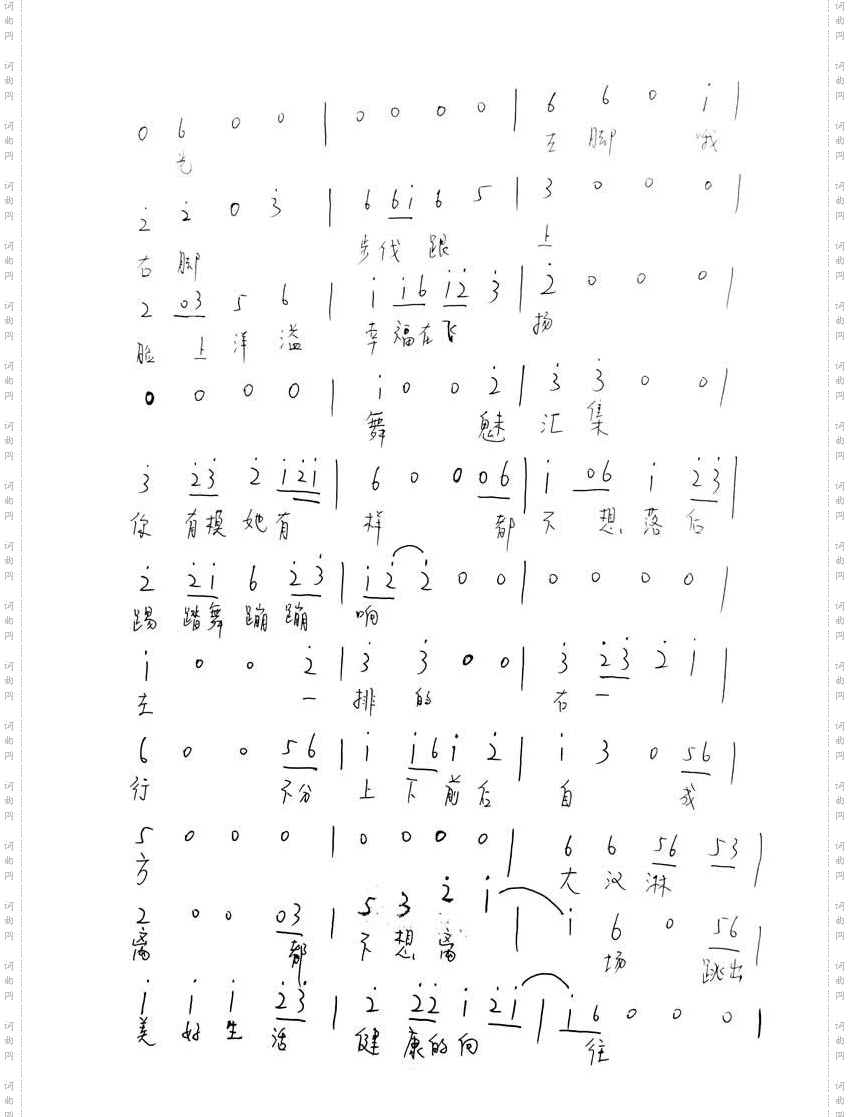 0 6 0 0 | 0 0 0 0 | 6 6 0 i̇ |
光 左 脚 哦
2̇ 2̇ 0 3̇ | 6 6i̇ 6 5 | 3 0 0 0 |
右 脚 步伐 跟 上
2 03 5 6 | i̇ i̇6 i̇2̇ 3̇ | 2̇ 0 0 0 |
脸 上 洋 溢 幸 福在飞 扬
0 0 0 0 | i̇ 0 0 2̇ | 3̇ 3̇ 0 0 |
舞 魅 汇 集
3̇ 2̇3̇ 2̇ i̇2̇i̇ | 6 0 0 06 | i̇ 06 i̇ 2̇3̇ |
你 有模 她有 样 都 不 想 落 后
2̇ 2̇i̇ 6 2̇3̇ | i̇2̇ 2̇ 0 0 | 0 0 0 0 |
踢 踏舞 蹦 蹦 响
i̇ 0 0 2̇ | 3̇ 3̇ 0 0 | 3̇ 2̇3̇ 2̇ i̇ |
左 一 排 的 右 一
6 0 0 56 | i̇ i̇6 i̇ 2̇ | i̇ 3 0 56 |
行 不分 上 下 前 后 自 成
5 0 0 0 | 0 0 0 0 | 6 6 56 53 |
方 大 汉 淋
2 0 0 03 | 5 3 2̇ i̇ | i̇ 6 0 56 |
离 都 不 想 离 场 跳出
i̇ i̇ i̇ 2̇3̇ | 2̇ 2̇2̇ i̇ 2̇i̇ | i̇6 0 0 0 |
美 好 生 活 健 康的 向 往
词曲网